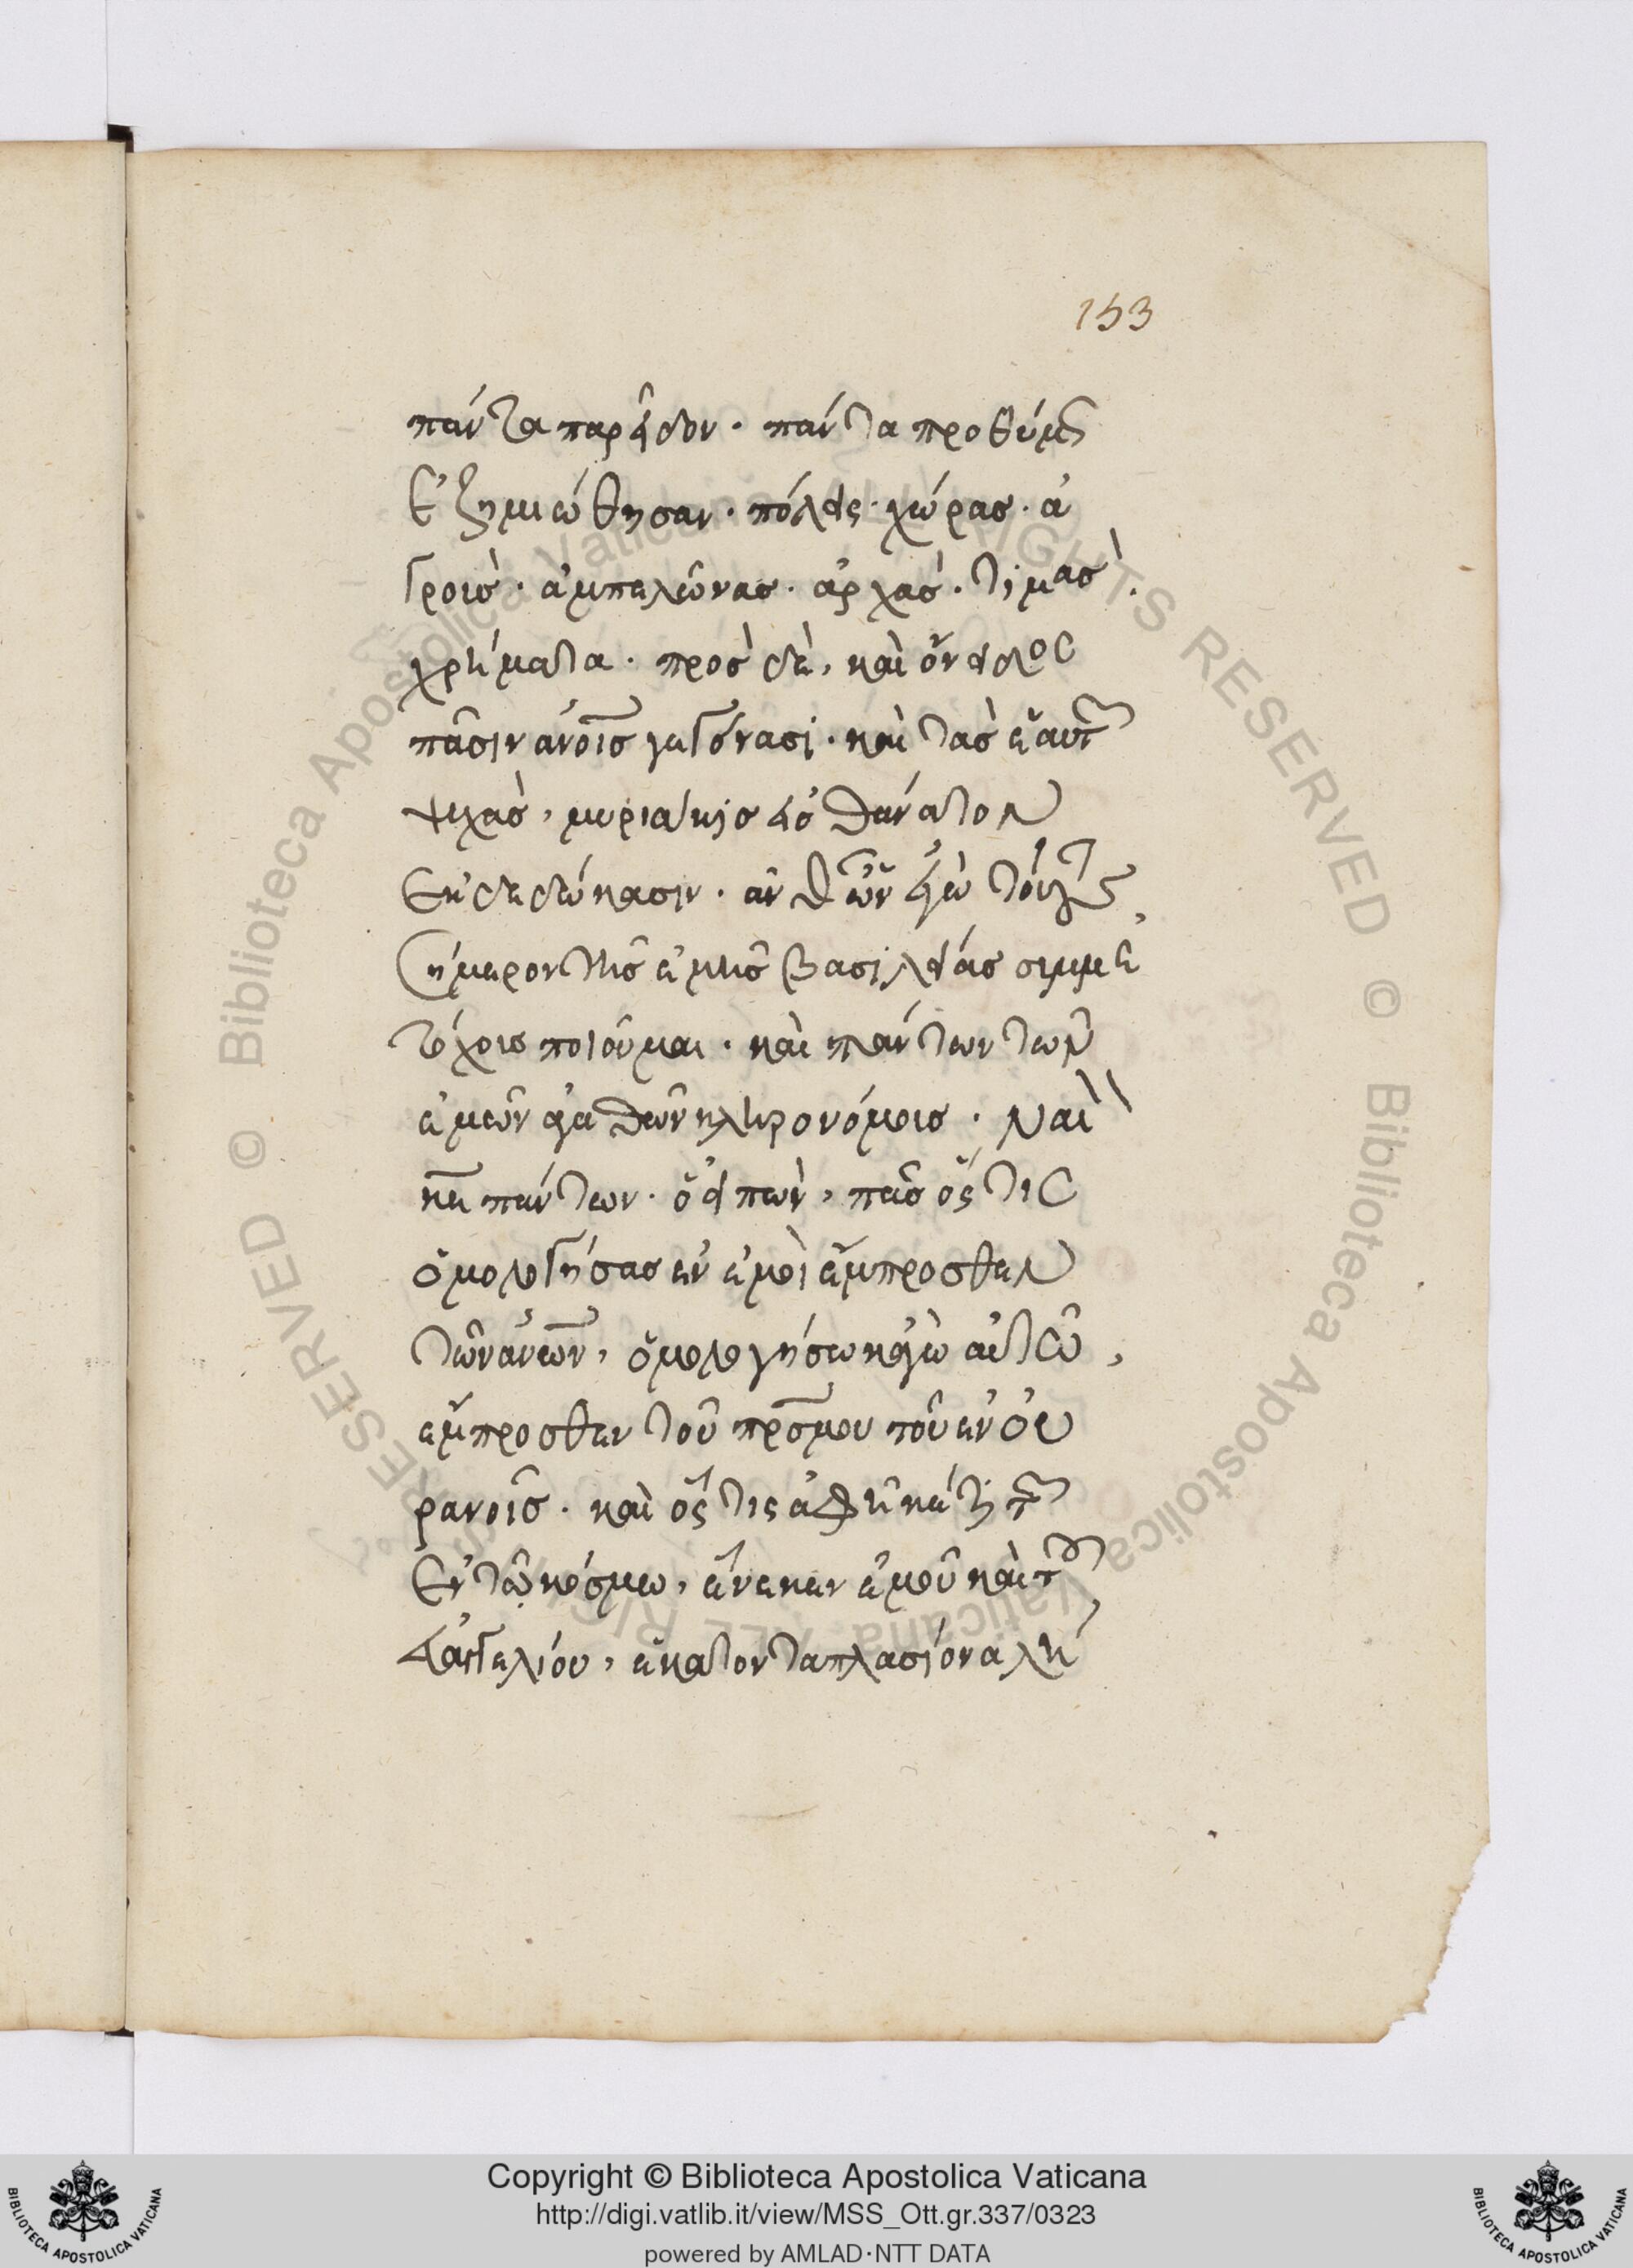 153
πάντα παρεῖδον· πάντα προθύμως
ἐζημιώθησαν· πόλεις· χώρας· ἀ
γρους· ἀμπελῶνας· ἀρχὰς· τιμὰς·
χρήματα· πρὸς δὲ, καὶ ὄνειδος
πᾶσιν ἀνοις γεγόνασι· καὶ τὰς ἑαυτ
ψυχὰς, μυριάκις εἰς θάνατον
ἐκδεδώκασιν· ἀνθ ὧν ἐγὼ τούτους
σήμερον τῆς ἐμῆς βασιλείας συμμε
τόχους ποιοῦμαι· καὶ πάντων τῶν
ἐμῶν ἀγαθῶν κληρονόμους· Ναὶ
κε πάντων· ὁ εἰπὼν, πᾶς ὅς τις
ὁμολογήσας ἐν ἐμοὶ ἔμπροσθεν
τῶν ἀνων, ὁμολογήσω κἀγὼ αὐτῶ,
ἔμπροσθεν τοῦ πρσ μου τοῦ ἐν οὐ
ρανοῖς· καὶ ὅς τις ἀφῆκέ τι τῶν
ἐν τῶ κόσμω, ἕνεκεν ἐμοῦ καὶ τοῦ
εὐαγγελίου, ἑκατονταπλασίονα λή
Copyright © Biblioteca Apostolica Vaticana
http://digi.vatlib.it/view/MSS_Ott.gr.337/0323
powered by AMLAD·NTT DATA
BIBLIOTECA APOSTOLICA VATICANA
BIBLIOTECA APOSTOLICA VATICANA
© Biblioteca Apostolica Vaticana ALL RIGHTS RESERVED
© Biblioteca Apostolica Vaticana ALL RIGHTS RESERVED